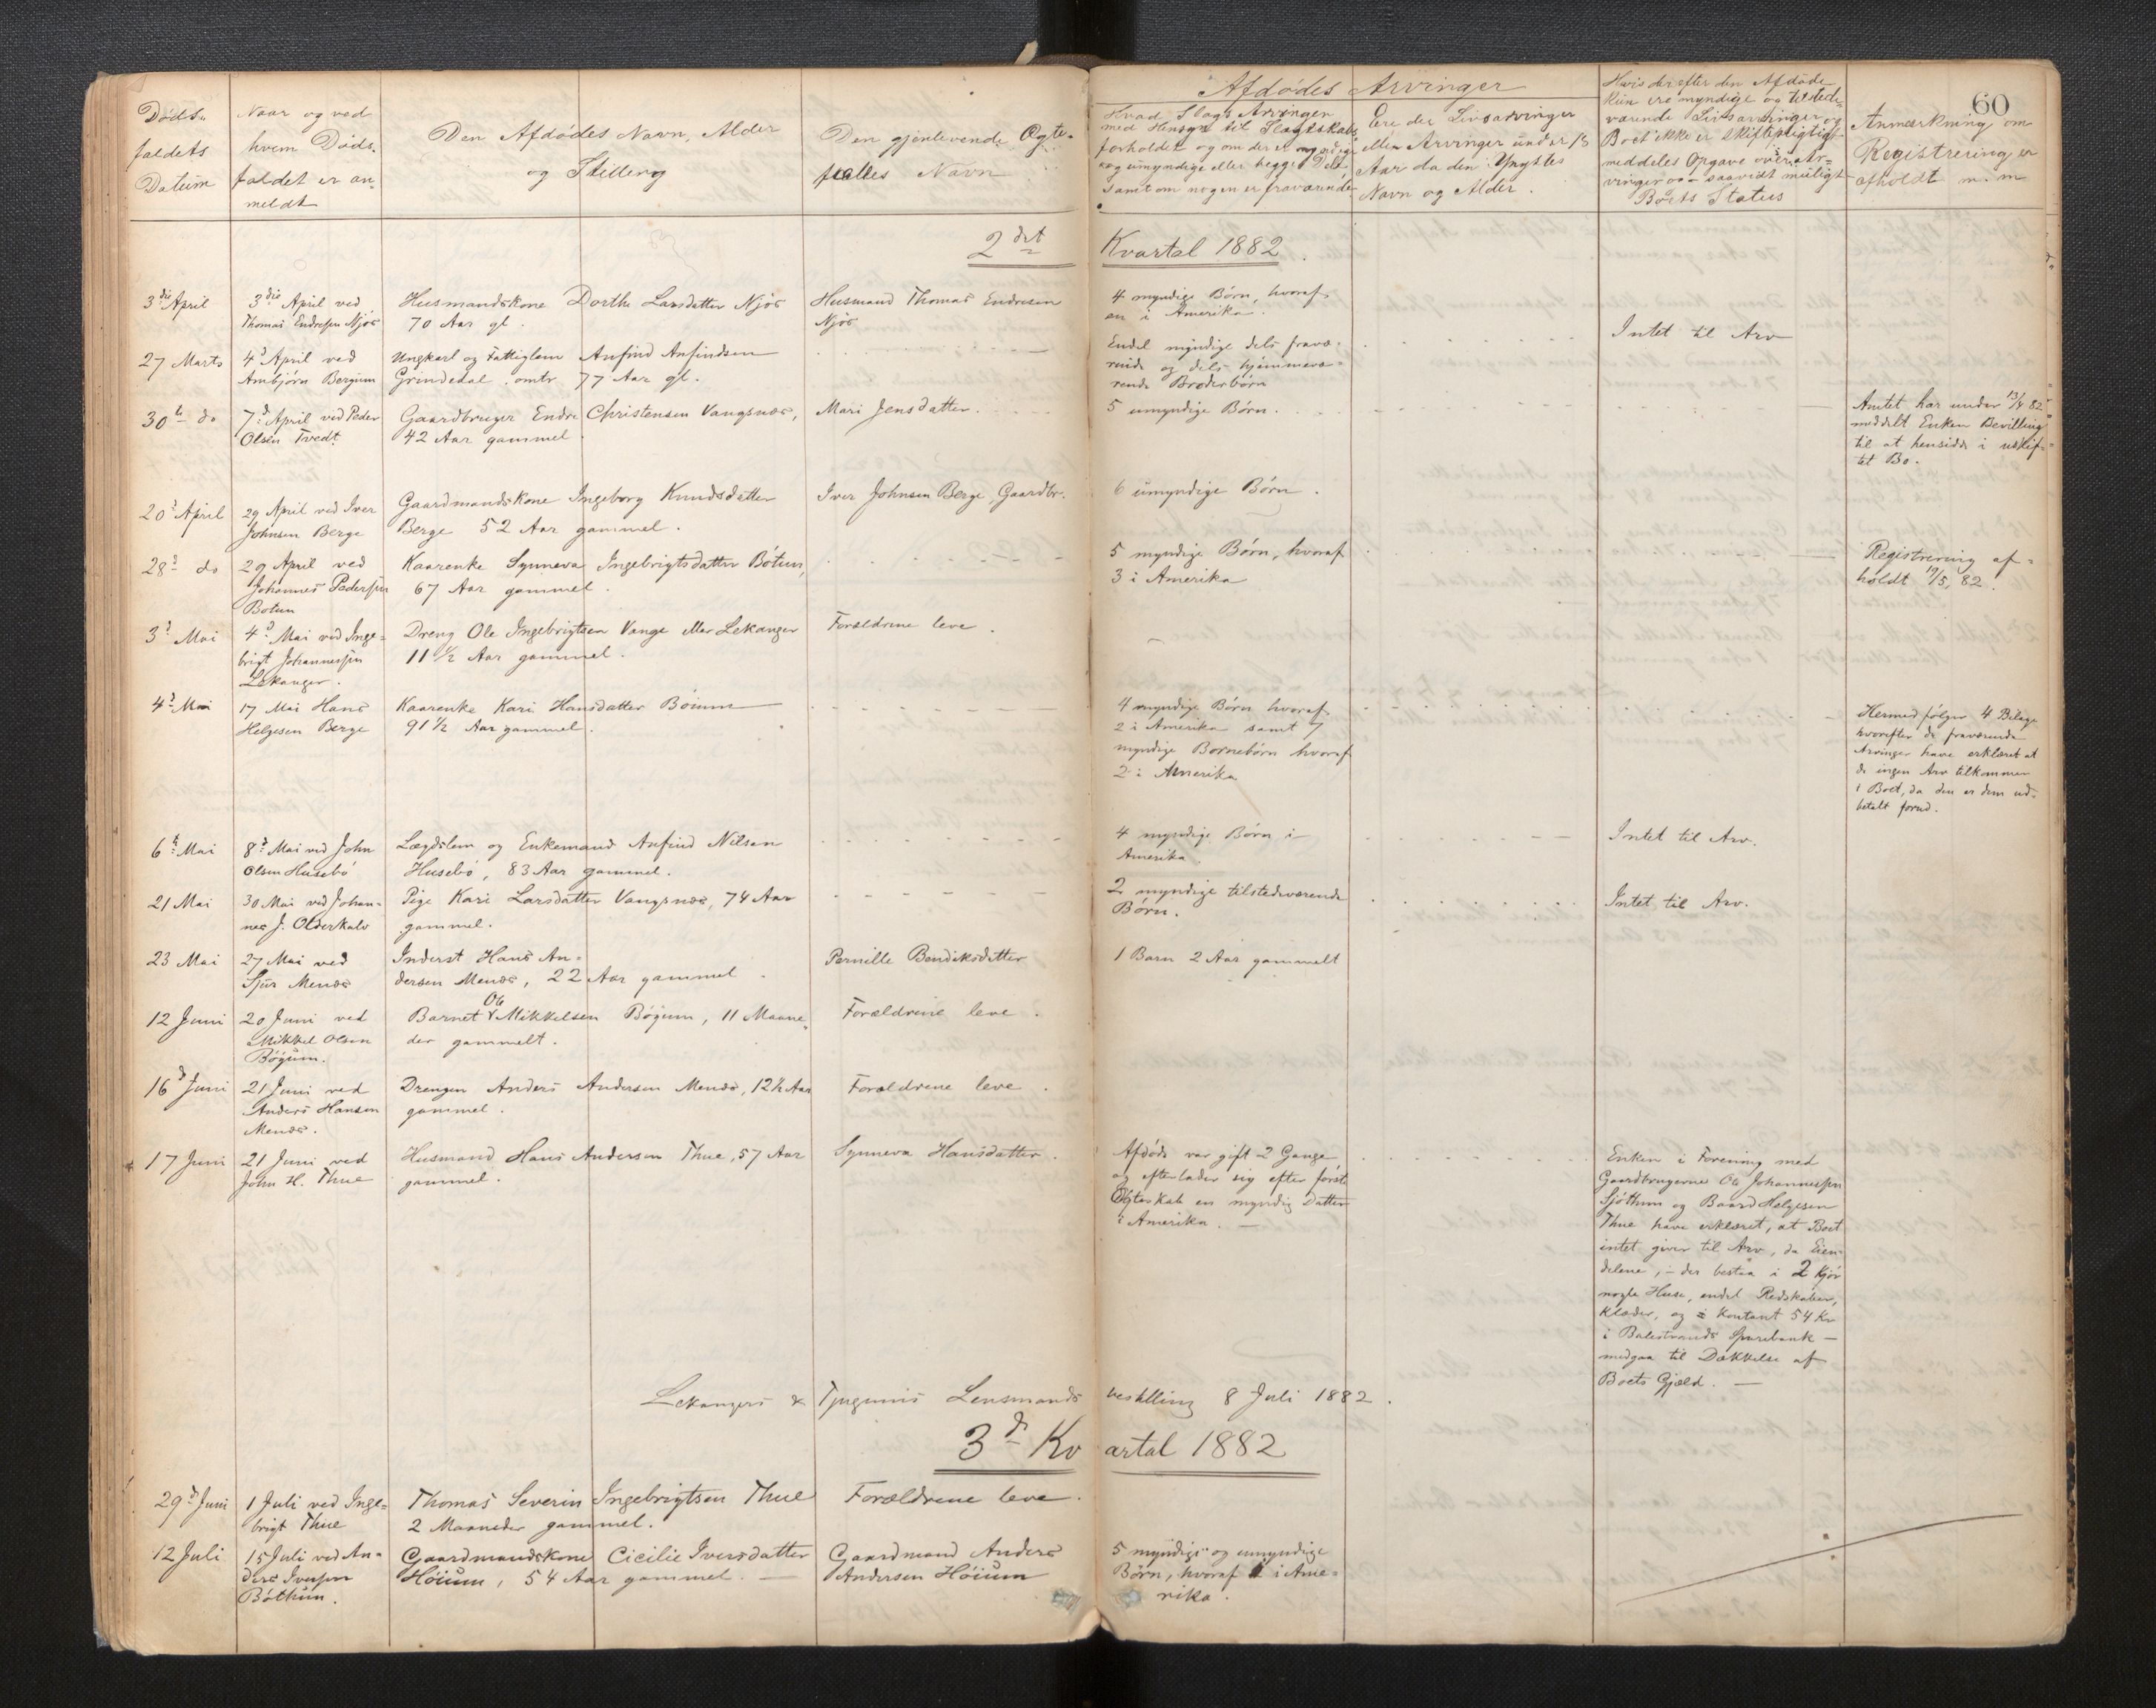 60
Afdødes Arvinger
Dødsfaldets Datum
Naar og ved
hvem Døds-
faldet er an-
meldt
Den Afdødes Navn, Alder
og Stilling
Den gjenlevende Ægte-
fælles Navn
Hvad Slags Arvinger
med Hensyn til Slægtskabs-
forholdet og om der er myndige
og umyndige eller begge Dele,
samt om nogen er fraværende
Ere der Livsarvinger
eller Arvinger under 18
Aar da den Yngstes
Navn og Alder.
Hvis der efter den Afdøde
kun ere myndige og tilstede-
værende Livsarvinger og
Boet ikke er skiftepligtigt
meddeles Opgave over Ar-
vinger og saavidt muligt
Boets Status
Anmærkning om
Registrering er
afholdt m. m
2det Kvartal 1882.
3die April
3die April ved
Thomas Endresen Njøs
Husmandskone Dorthe Larsdatter Njøs
70 Aar gl.
Husmand Thomas Endresen
Njøs
4 myndige Börn, hvoraf
en i Amerika.
27 Marts
4d April ved
Arnbjörn Bergum
Ungkarl og Fattiglem Anfind Anfindsen
Grindedal omtr 77 Aar gl.
Endel myndige dels fravæ-
rende og dels hjemmevæ-
rende Broderbörn
Intet til Arv
30te do
7d April ved Peder
Olsen Tvedt.
Gaardbruger Endre Christensen Vangsnæs,
42 Aar gammel
Mari Jensdatter.
5 umyndige Börn.
Amtet har under 13/4 82
meddelt Enken Bevilling
til at hensidde i uskif-
tet Bo.
20d April
29 April ved Iver
Johnsen Berge
Gaardmandskone Ingeborg Knudsdatter
Berge 52 Aar gammel.
Iver Johnsen Berge, Gaardbr.
6 umyndige Börn.
28d do
29 April ved
Johannes Pedersen
Botun
Kaarenke Synneva Ingebrigtsdatter Bötun,
67 Aar gammel.
5 myndige Börn, hvoraf
3 i Amerika
Registrering af-
holdt 19/5 82.
3d Mai
4d Mai ved Inge-
brigt Johannessen
Lekanger.
Dreng Ole Ingebrigtsen Vange eller Lekanger
11 1/2 Aar gammel.
Forældrene leve.
4d Mai
17 Mai Hans
Helgesen Berge
Kaarenke Kari Hansdatter Böium
91 1/2 Aar gammel.
4 myndige Börn hvoraf
2 i Amerika samt 7
myndige Bornebörn hvoraf
2 i Amerika
Hermed følger 4 Bilage
hvorefter de fraværende
Arvinger have erklæret at
de ingen Arv tilkommer
i Boet, da den er dem ud-
betalt forud.
6te Mai
8d Mai ved John
Olsen Husebö
Lægdslem og Enkemand Anfind Nilsen
Husebö, 83 Aar gammel.
4 myndige Börn i
Amerika.
Intet til Arv.
21 Mai
30 Mai ved Johan-
nes J. Olderkalv
Pige Kari Larsdatter Vangsnæs, 74 Aar
gammel.
2 myndige tilstedeværende
Börn.
Intet til Arv.
23 Mai
27 Mai ved
Sjur Menæs
Inderst Hans An-
dersen Menæs, 22 Aar gammel.
Pernille Bendiksdatter
1 Barn 2 Aar gammelt
12 Juni
20 Juni ved
Mikkel Olsen
Böyum.
Barnet Ole Mikkelsen Böyum, 11 Maane-
der gammelt.
Forældrene leve.
16d Juni
21 Juni ved
Anders Hansen
Menæs.
Drengen Anders Andersen Menæs, 12 1/2 Aar
gammel.
Forældrene leve.
17 Juni
21 Juni ved
John H. Thue
Husmand Hans Andersen Thue, 57 Aar
gammel.
Synneva Hansdatter.
Afdøde var gift 2 Gange
og efterlader sig efter første
Ægteskab en myndig Datter
i Amerika.
Enken i Forening med
Gaardbrugerne Ole Johannessen
Sjöthun og Baard Helgesen
Thue have erklæret, at Boet
intet giver til Arv, da Eien-
delene, – der bestaa i 2 Kjör
nogle Huse, endel Redskaber,
Klæder, og kontant 54 Kr
i Balestrands Sparebank –
medgaa til Dækkelse af
Boets Gjæld.
Lekangers & Tjugums Lensmandsbestilling 8 Juli 1882.
3d Kvartal 1882
29d Juni
1 Juli ved Inge-
brigt Thue
Thomas Severin Ingebrigtsen Thue
2 Maaneder gammel.
Forældrene leve.
12 Juli
15 Juli ved An-
ders Iversen
Böthun.
Gaardmandskone Cicilie Iversdatter
Höium, 54 Aar gammel.
Gaardmand Anders
Andersen Höium
5 myndige og umyndige
Börn, hvoraf 1 i Ame-
rika.